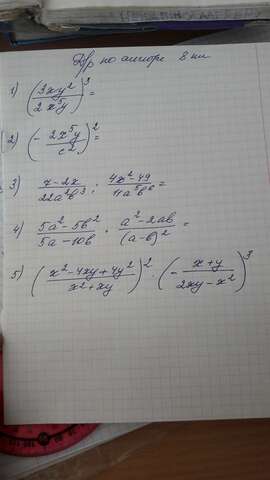 Д/р по алгебре 8 кл
1) (3xy²/2x⁵y)³=
2) (-2x⁵y/c²)²=
3) x-2x/22a²b³ : 4x²-49/11a⁵b⁶=
4) 5a²-5b²/5a-10b · a²-2ab/(a-b)²=
5) (x²-4xy+4y²/x²+xy)² · (-x+y/2xy-x²)³